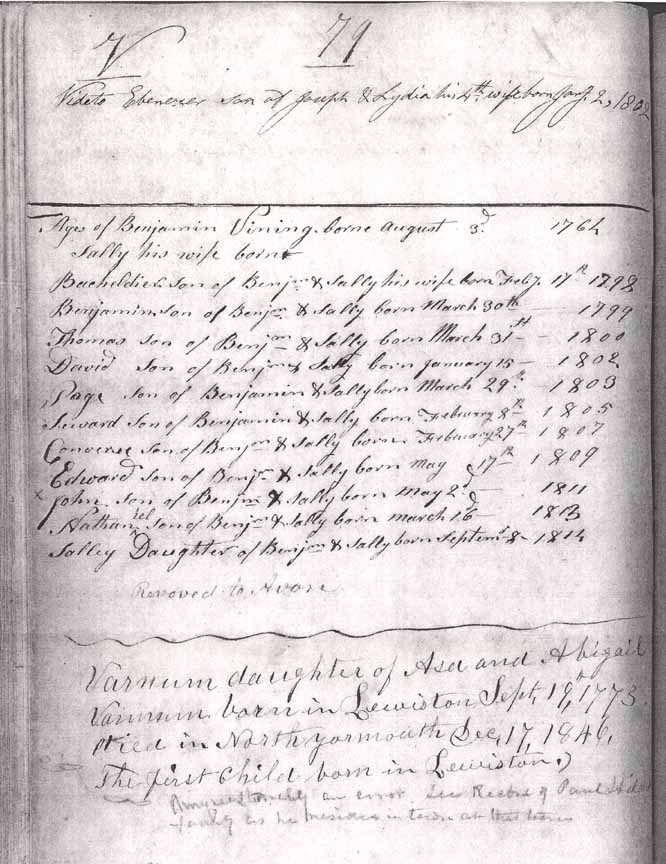 V 79
Videto Ebenezer Son of Joseph & Lydia his 4th wife born Jany. 2, 1802
Ages of Benjamin Vining borne August 3d. 1764
Sally his wife born
Bacheldier Son of Benjm & Sally his wife born Feby. 17th 1798
Benjamin Son of Benjm & Sally born March 30th 1799
Thomas Son of Benjm & Sally born March 31st 1800
David Son of Benjm & Sally born January 15 1802
Page Son of Benjamin & Sally born March 29th 1803
Seward Son of Benjamin & Sally born February 8th 1805
Converse Son of Benjm & Sally born February 27th 1807
Edward Son of Benjm & Sally born May 17th 1809
x John Son of Benjm & Sally born May 2d 1811
Nathaniel Son of Benjm & Sally born March 16 1813
Salley Daughter of Benjm & Sally born Septemr 8 1814
Removed to Avon
Varnum daughter of Asa and Abigail
Varnum born in Lewiston Sept, 19, 1773.
Died in North yarmouth Dec, 17, 1846,
The first child born in Lewiston.)
an error See Record of Paul
family as he resided in town at that time